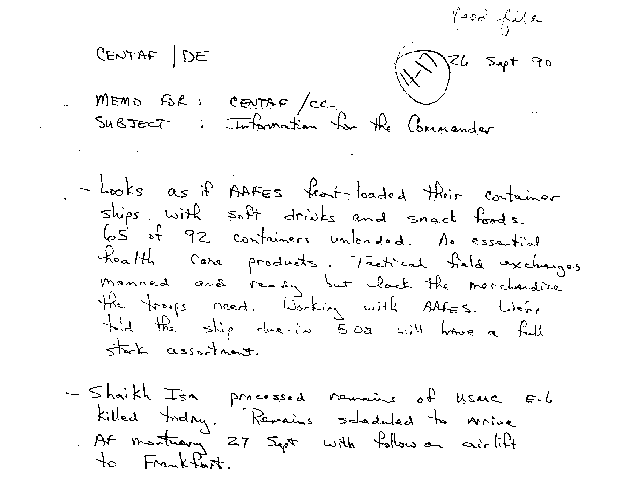 file
CENTAF/DE
26 Sept 90
MEMO FOR: CENTAF/CC
SUBJECT: Information for the Commander
- Looks as if AAFES front-loaded their container
ships with soft drinks and snack foods.
65 of 92 containers unloaded. No essential
health care products. Tactical field exchanges
manned and ready but lack the merchandise
the troops need. Working with AAFES. We're
told the ship due-in 5 Oct will have a full
stock assortment.
- Shaikh Isa processed remains of USMC E-6
killed today. Remains scheduled to arrive
AF mortuary 27 Sept with follow on airlift
to Frankfurt.